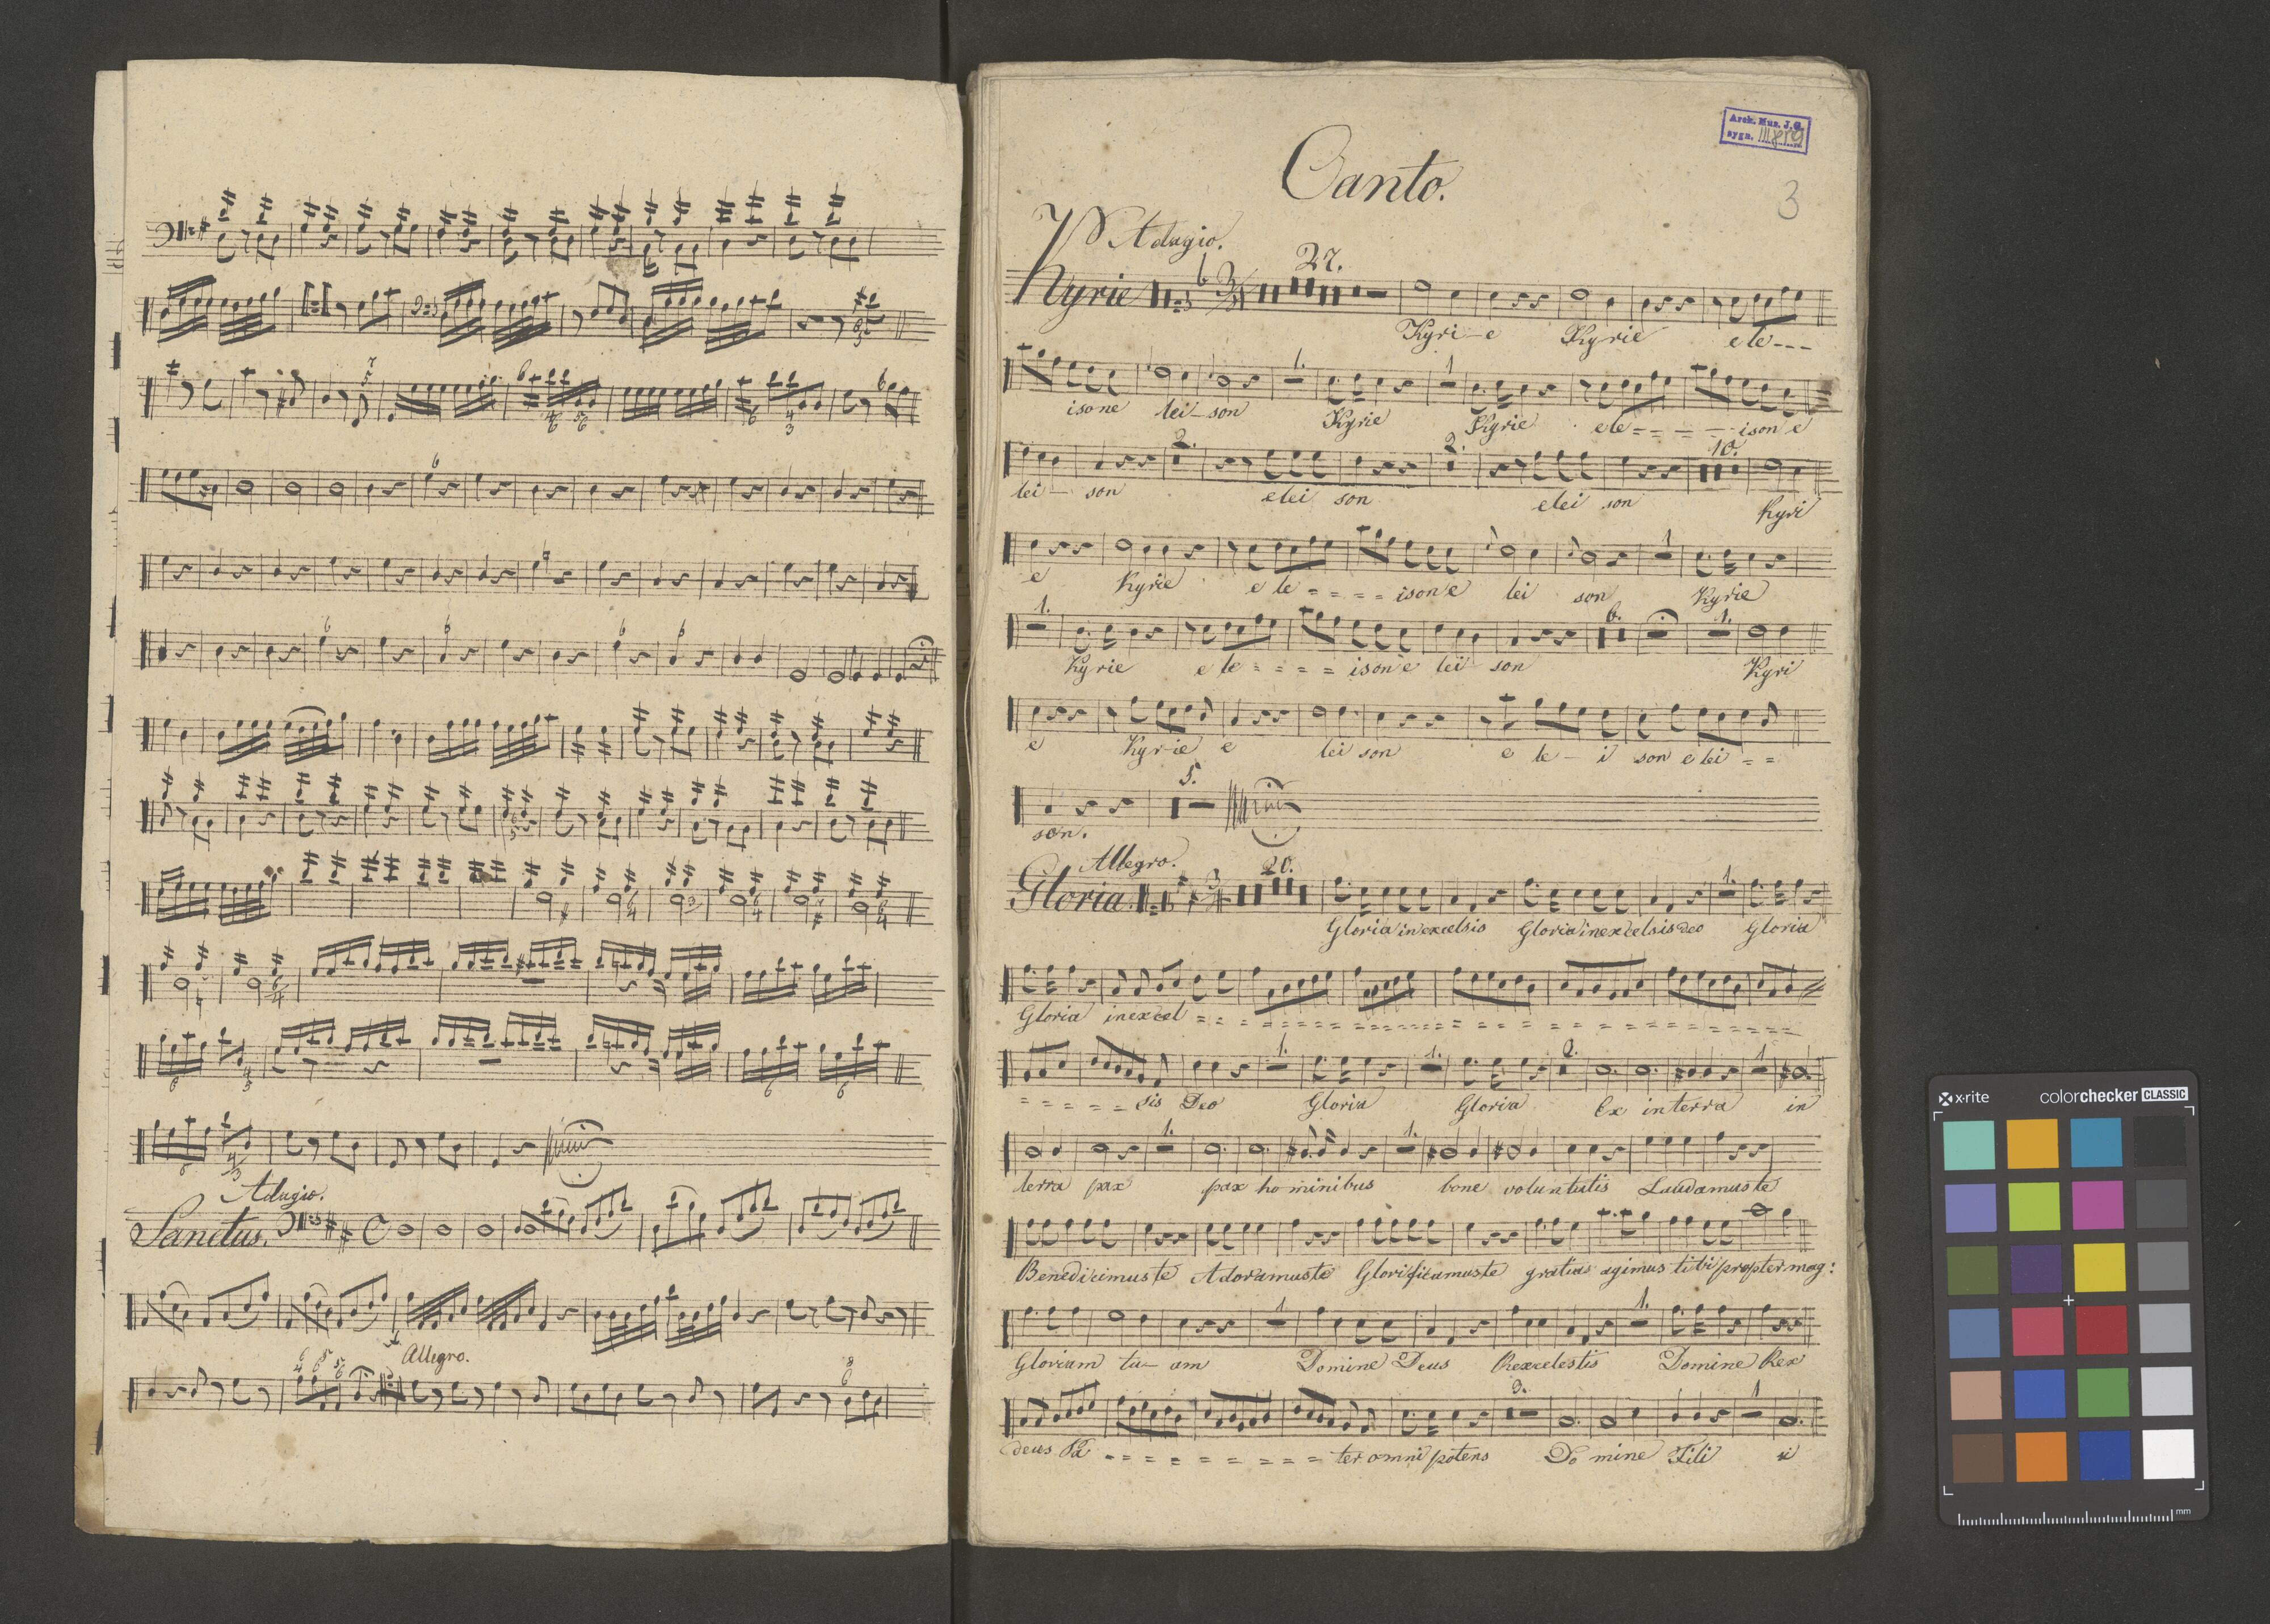 Adagio.
Sanctus.
Allegro.
Arch. Muz. J. G.
sygn. III 819
Canto.
3
Adagio.
27.
Kyrie
Kyri-e Kyrie ele---
1. 1
isone lei-son Kyrie Kyrie ele=== - ison e
2. 2. 10.
lei- son elei son elei son Kyri
1
e Kyrie e le = = = = ison e lei son Kyrie
1. 6. 1.
Kyrie e le = = = = ison e lei- son Kyri
e Kyrie e lei son e le - i son e lei = =
5.
son.
Allegro.
20. 1.
Gloria.
Gloria in excelsis Gloria in excelsis deo Gloria
Gloria in excel = = =
1. 1. 2. 1
= = = = = = sis Deo Gloria Gloria Ex in terra in
1. 1.
terra pax pax hominibus bone voluntatis Laudamus te
Benedicimus te Adoramus te Glorificamus te gratias agimus tibi propter mag:
1 1.
Gloriam tu-am Domine Deus Rex celestis Domine Rex
3. 1
deus Pa = = = = = = = = = ter omnipotens Do mine Fili
x-rite colorchecker CLASSIC
mm